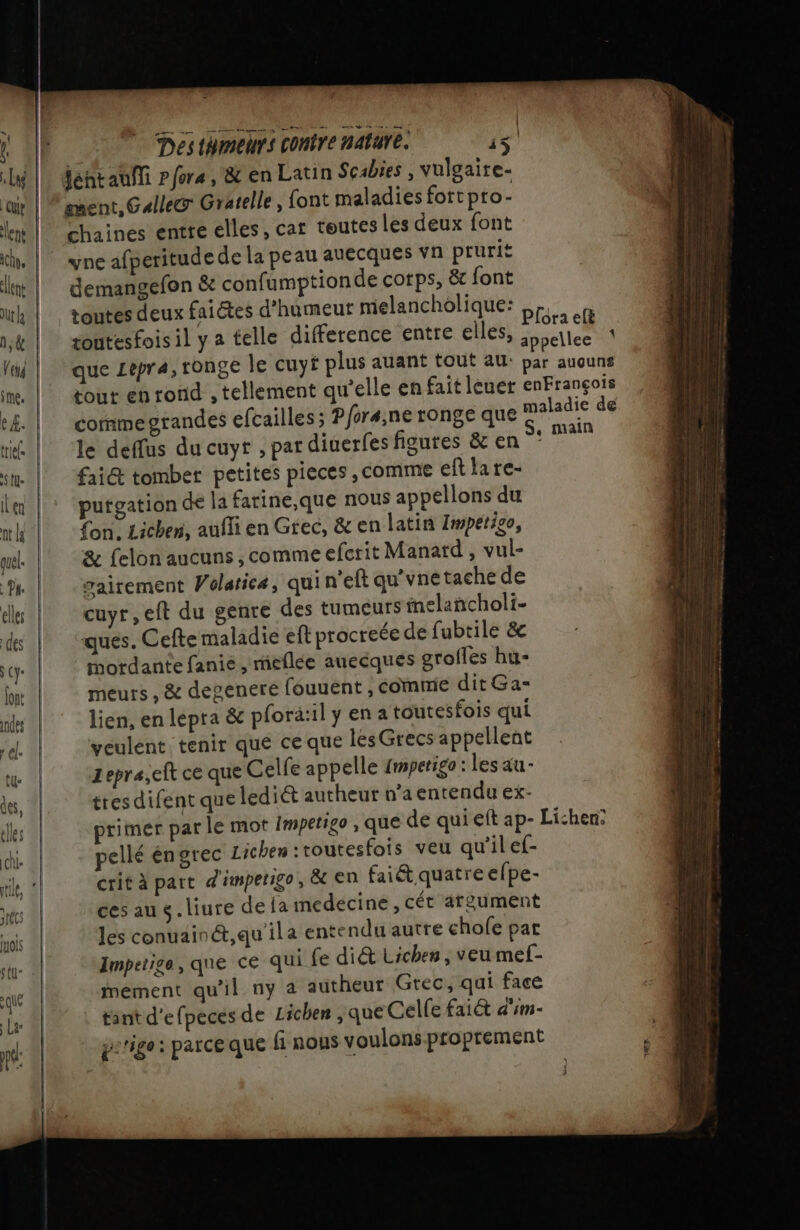 Des tumeurs contre nature. 45
lent aussi Psora, & en Latin Scabies, vulgaire-
ment, Galle or Gratelle, sont maladies fort pro-
chaines entre elles, car toutes les deux sont
vne asperitude de la peau auecques vn prurit
demangeson & consumption de corps, & sont
toutes deux faictes d'humeur melancholique:
toutesfois il y a telle difference entre elles,
que Lepra, ronge le cuyr plus auant tout au
tour en rond, tellement qu'elle en fait leuer
comme grandes escailles; Psora, ne ronge que
le dessus du cuyr, par diuerses figures & en
faict tomber petites pieces, comme est la re-
purgation de la farine, que nous appellons du
son. Lichen, aussi en Grec, & en latin Impetigo,
& selon aucuns, comme escrit Manard, vul-
gairement Volatica, qui n'est qu'vne tache de
cuyr, est du genre des tumeurs melancholi-
ques. Ceste maladie est procreée de subtile &
mordante sanie, meslee auecques grosses hu-
meurs, & degenere souuent, comme dit Ga-
lien, en lepra & psora: il y en a toutesfois qui
veulent tenir que ce que les Grecs appellent
Lepra, est ce que Celse appelle Impetigo: les au-
tres disent que ledict autheur n'a entendu ex-
primer par le mot Impetigo, que de qui est ap-
pellé en grec Lichen: toutesfois veu qu'il es-
crit à part d'impetigo, & en faict quatre espe-
ces au 5. liure de sa medecine, cét argument
les conuainct, qu'il a entendu autre chose par
Impetigo, que ce qui se dict Lichen, veu mes-
mement qu'il n'y a autheur Grec, qui face
tant d'especes de Lichen, que Celse faict d'im-
petigo: parce que si nous voulons proprement
Psora est
appellee
par aucuns
en François
maladie de
S. main
Lichen: